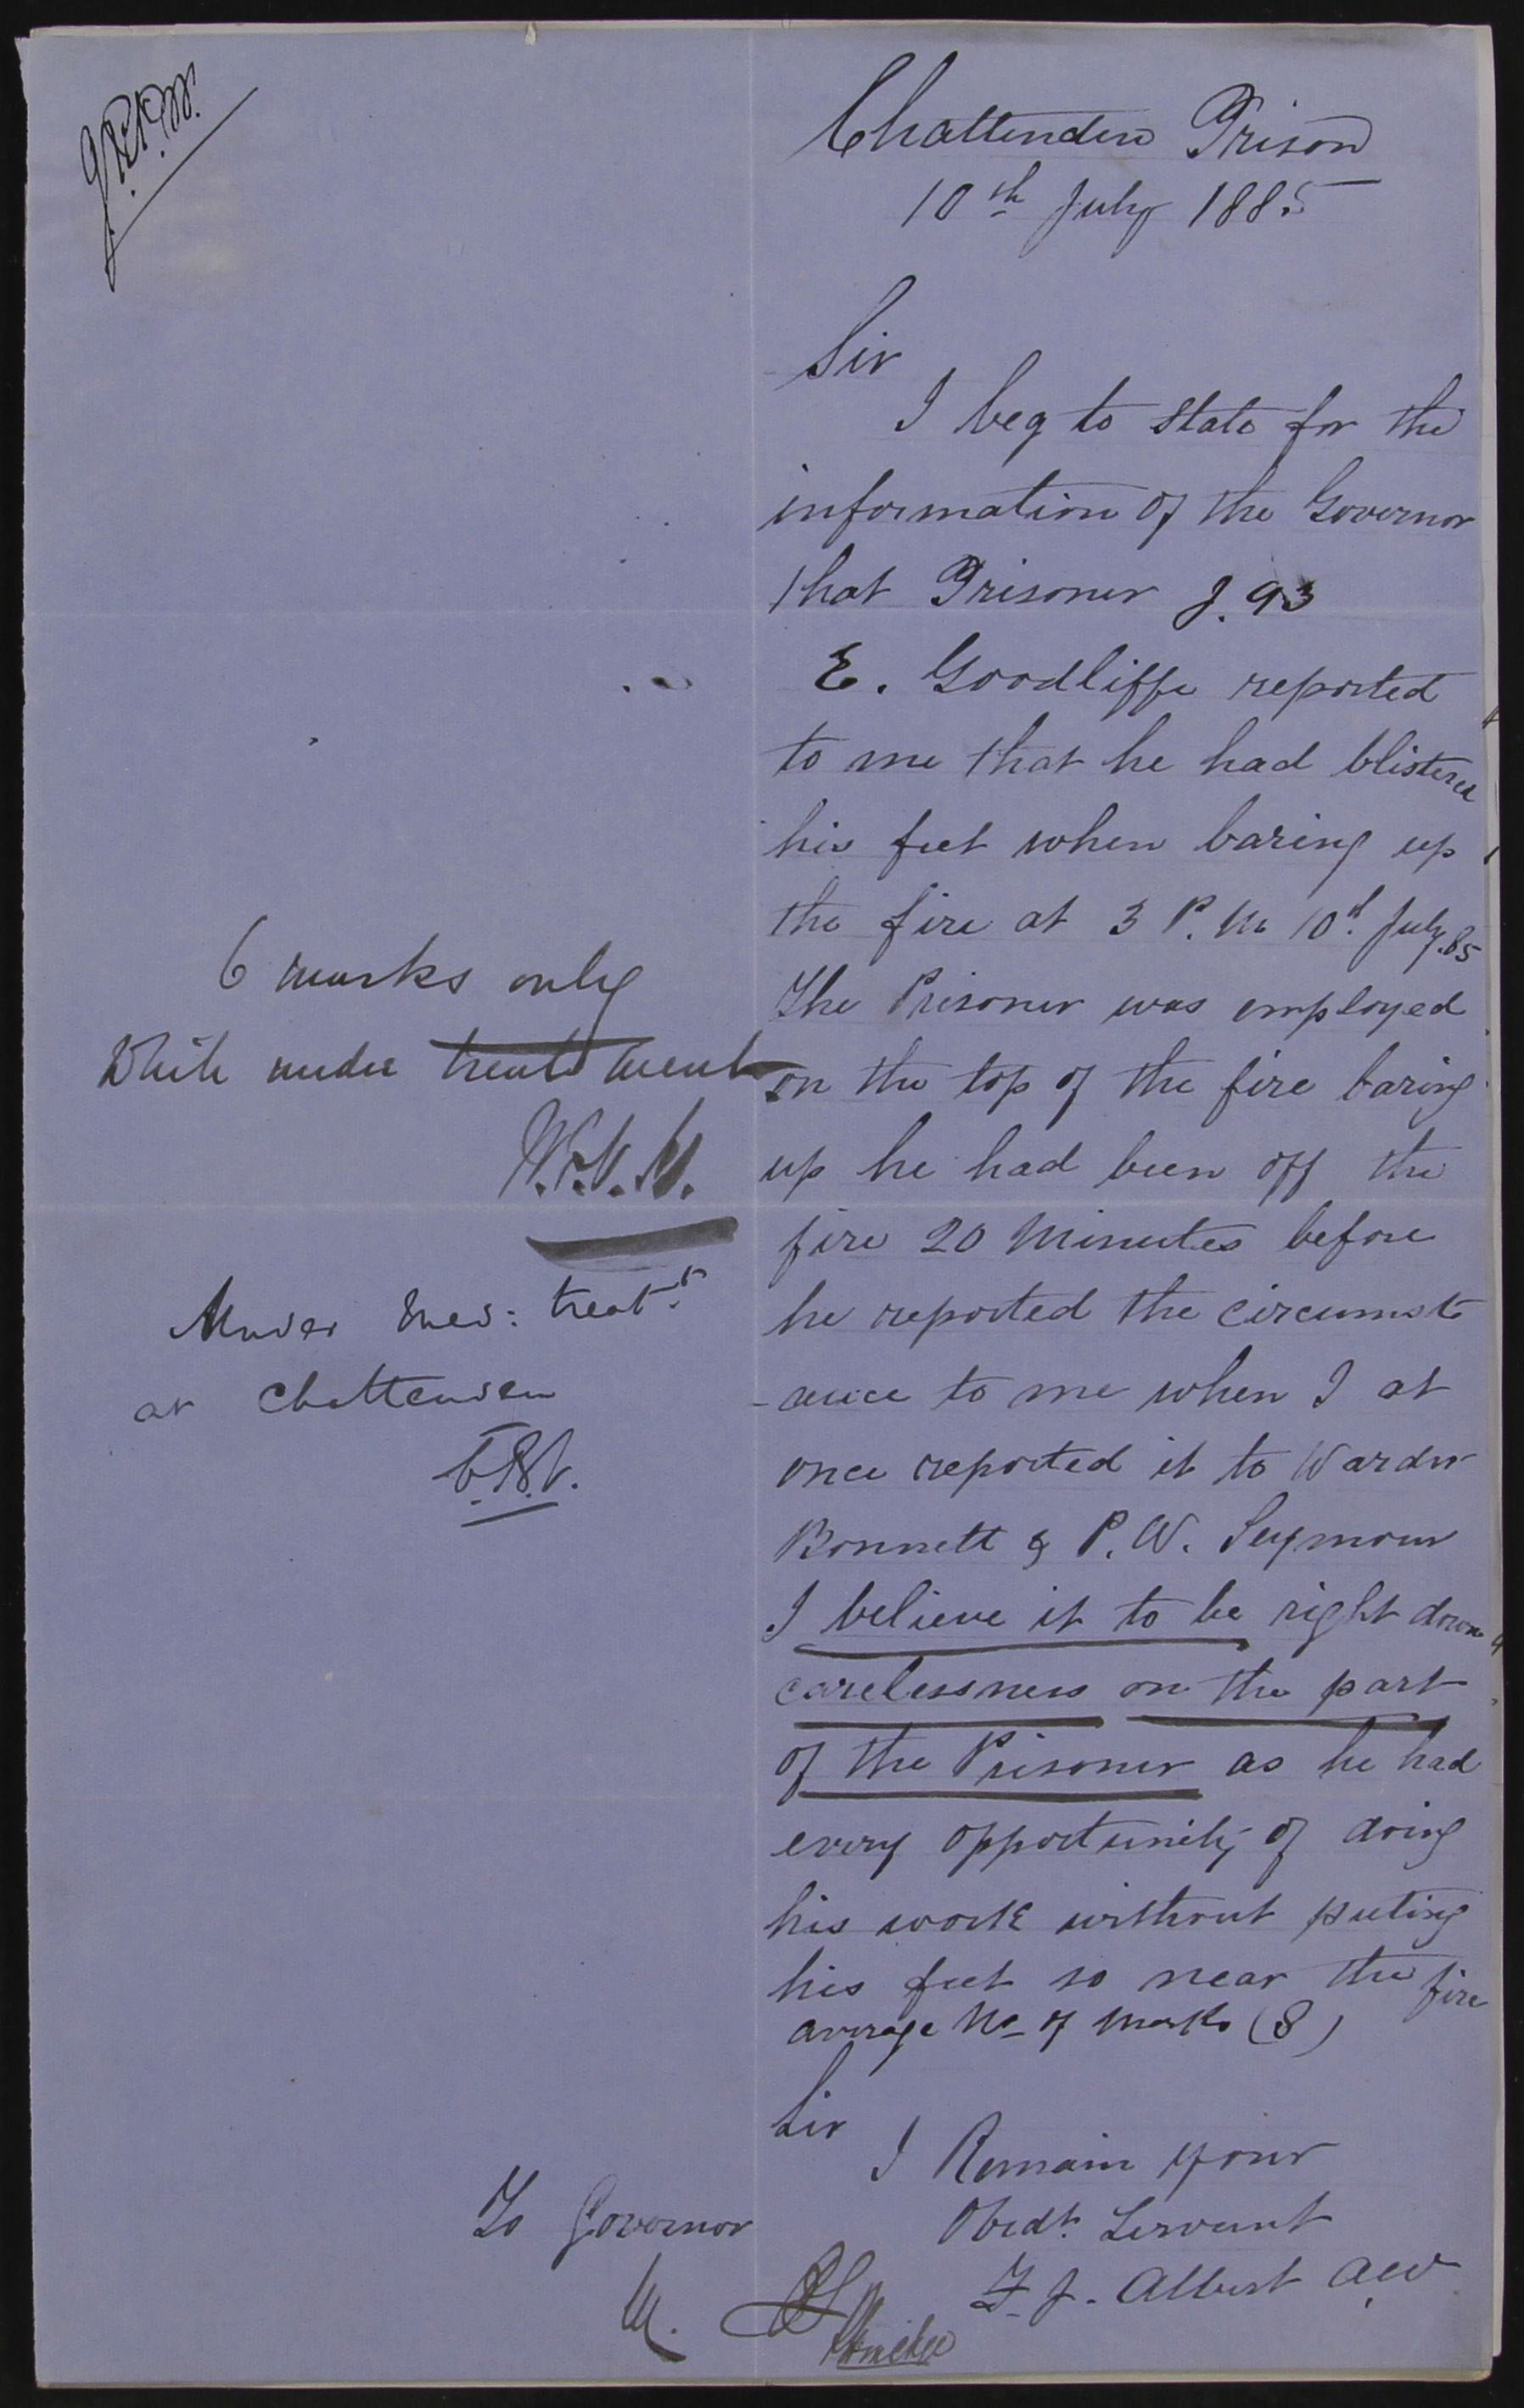 Chattenden Prison
10th July 1885
Sir
I beg to state for the
information of the Governor
that Prisoner J. 93
E. Goodliffe reported
to me that he had blistered
his feet when baring up
the fire at 3 P.M 10th July 85
The Prisoner was employed
on the top of the fire baring
up he had been off the
fire 20 Minutes before
he reported the circumst
-ance to me when I at
once reported it to Warder
Bonnett & P. W. Seymour
I believe it to be right down
carelessness on the part
of the Prisoner as he had
every opportunity of doing
his work without puting
his feet so near the fire
average No of Marks (8)
Sir
I Remain your
Obedt. Servant
F. J. Albert AW
6 marks only
While under treatment
Under Med: treatt.
at Chattenden
To Governor